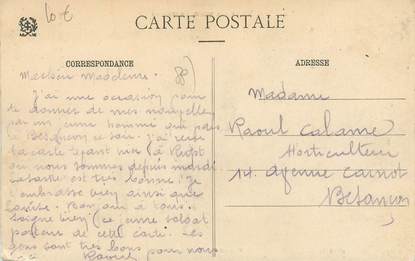 10 €
CARTE POSTALE
CORRESPONDANCE
ADRESSE
J'ai une occasion pour
te donner de mes nouvelles
par un jeune homme qui
Besançon ce soir. J'ai
la carte
où nous sommes depuis mardi
est très bonne. Je
t'embrasse bien ainsi que
Bonjour à tous.
Soigne bien ce jeune soldat
porteur de cette carte. Les
gens sont très bons pour nous
Raoul
Madame
Raoul Calame
Horticulteur
14 Avenue Carnot
Besançon